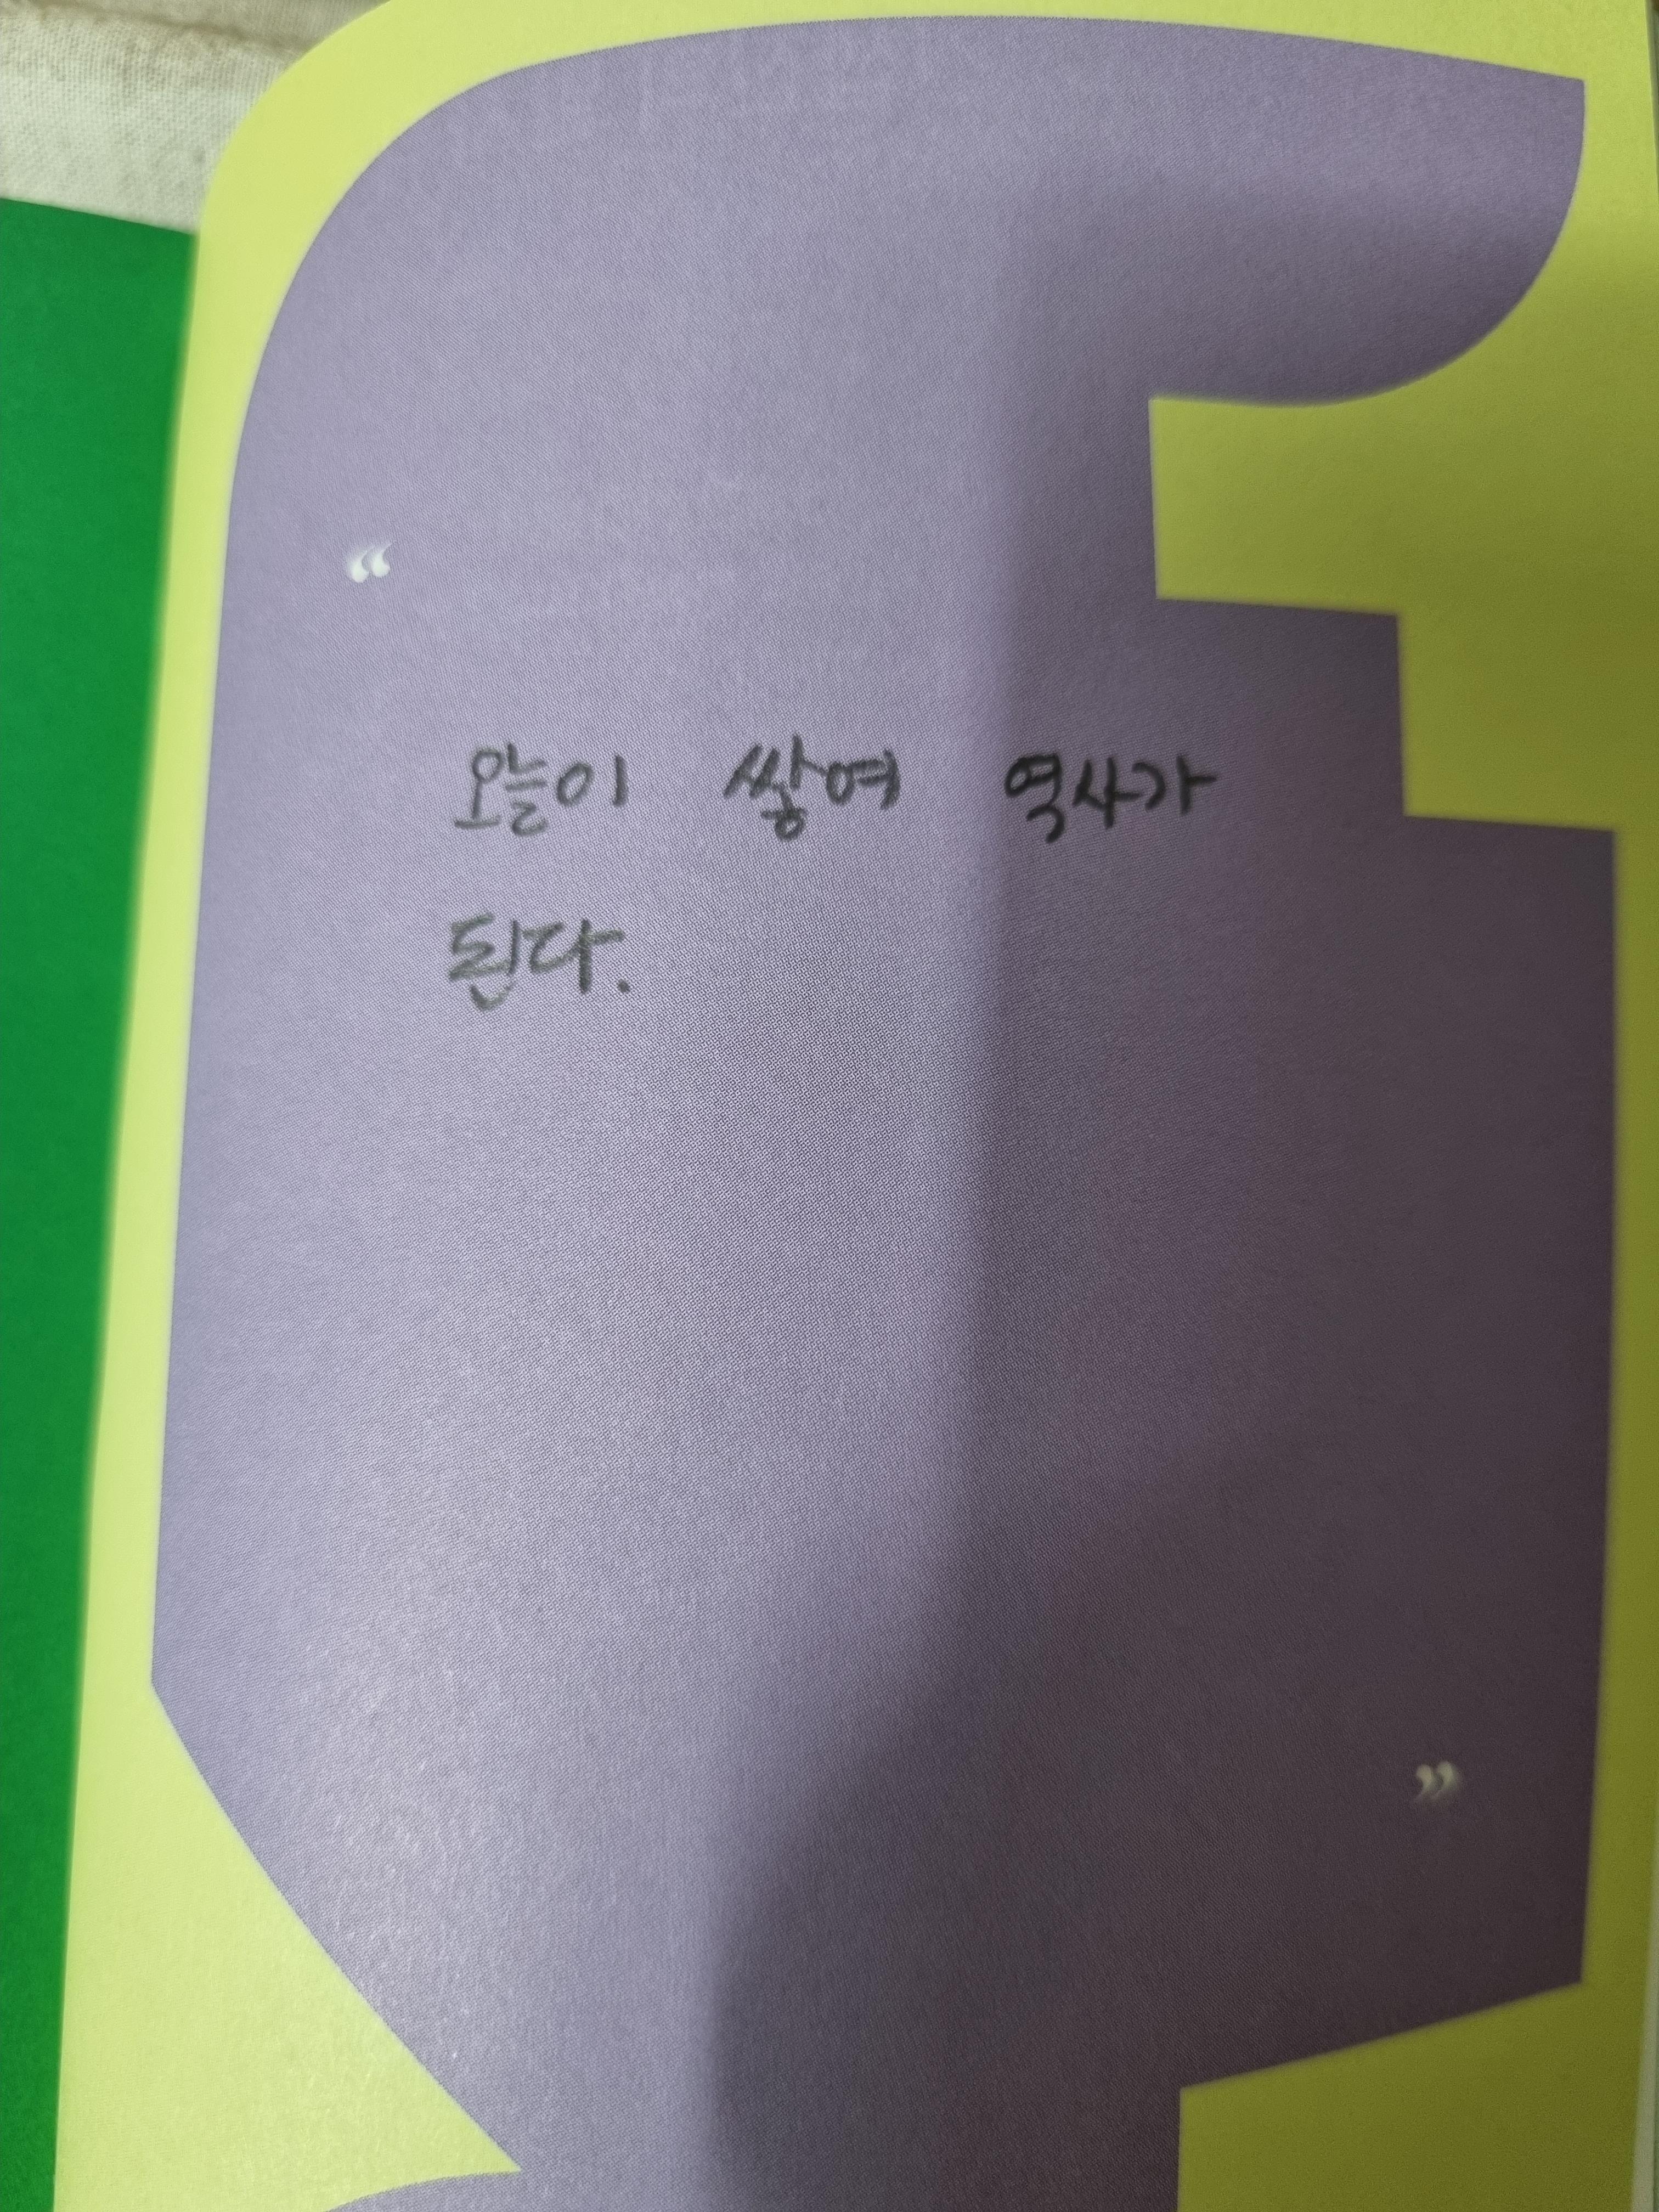 “
오늘이 쌓여 역사가
된다.
”